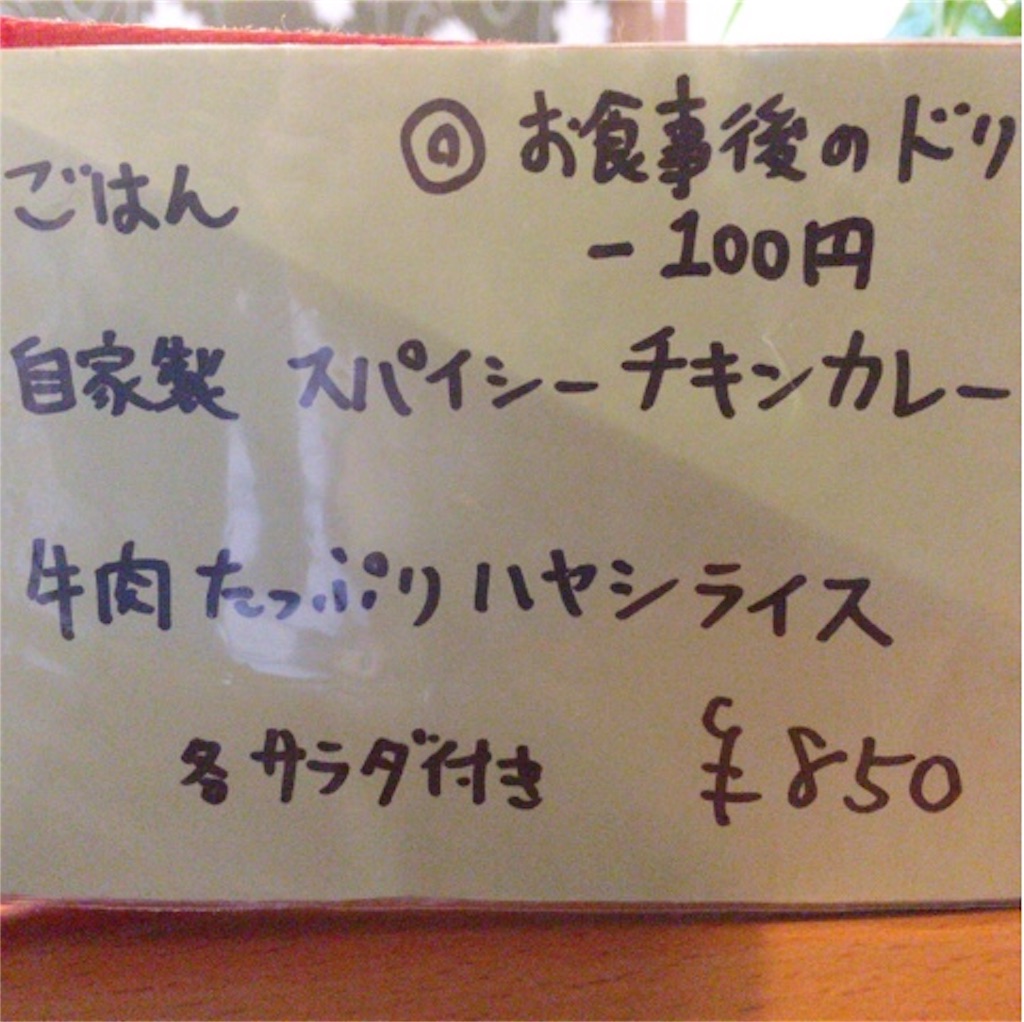 ◎ お食事後のドリ
ごはん
-100円
自家製 スパイシーチキンカレー
牛肉たっぷりハヤシライス
各サラダ付き ¥850